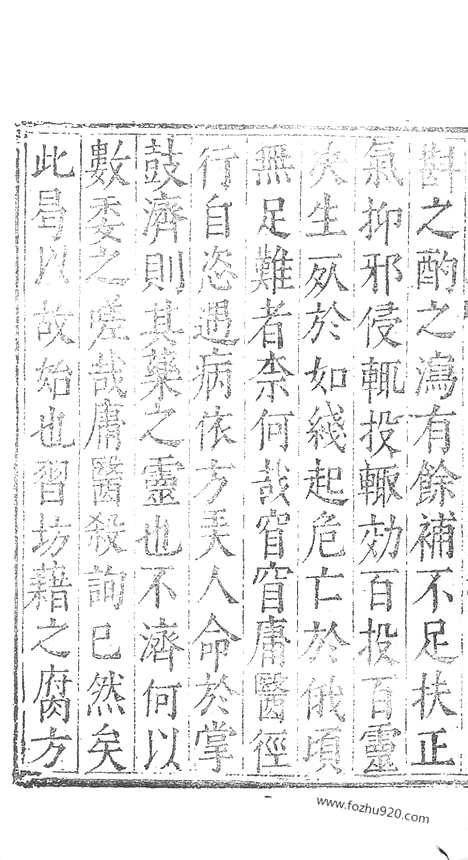 斟之酌之瀉有餘補不足扶正
氣抑邪侵輒投輒効百投百靈
夫生死於如綫起危亡於俄項
無足難者柰何哉窅窅庸醫徑
行自恣遇病依方弄人命於掌
鼓濟則其藥之靈也不濟何以
數委之嗟哉庸醫殺詢已然矣
此曷以故始也習坊藉之腐方
www.fozhu920.com